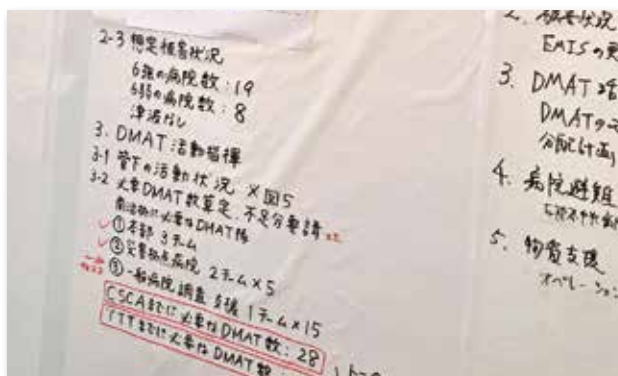 2-3 想定被害状況
6強の病院数:19
6弱の病院数:8
津波なし
3. DMAT活動指揮
3-1 管下の活動状況 ×図5
3-2 必要DMAT数算定、不足分要請
に必要なDMAT隊
①本部 3チーム
②災害拠点病院 2チーム×5
③一般病院調査支援 1チーム×15
CSCAまでに必要なDMAT数:28
TTTまでに必要なDMAT数:
2. 被害状況
EMISの
3. DMAT活
DMATの
分配計画
4. 病院避難
5. 物資支援
オペレーション